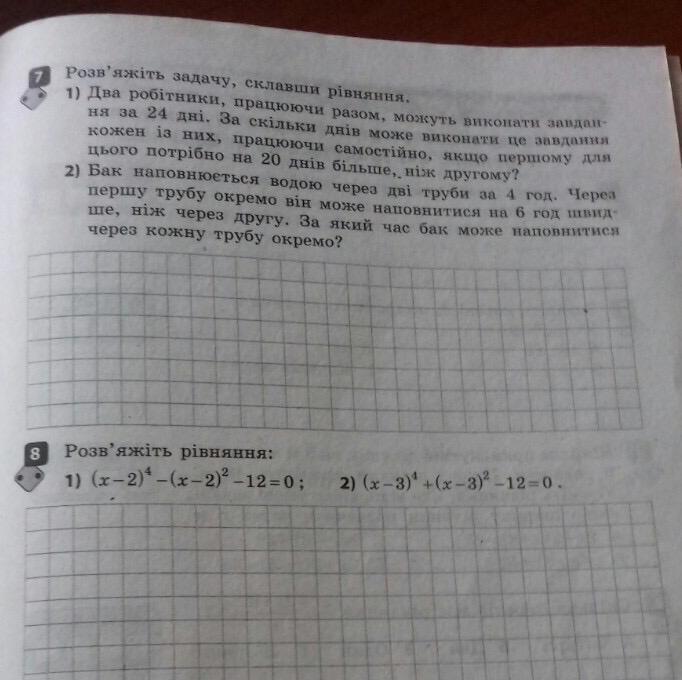 7 Розв'яжіть задачу, склавши рівняння.
1) Два робітники, працюючи разом, можуть виконати завдан-
ня за 24 дні. За скільки днів може виконати це завдання
кожен із них, працюючи самостійно, якщо першому для
цього потрібно на 20 днів більше, ніж другому?
2) Бак наповнюється водою через дві труби за 4 год. Через
першу трубу окремо він може наповнитися на 6 год швид-
ше, ніж через другу. За який час бак може наповнитися
через кожну трубу окремо?
8 Розв'яжіть рівняння:
1) (x−2)⁴−(x−2)²−12=0; 2) (x−3)⁴+(x−3)²−12=0.